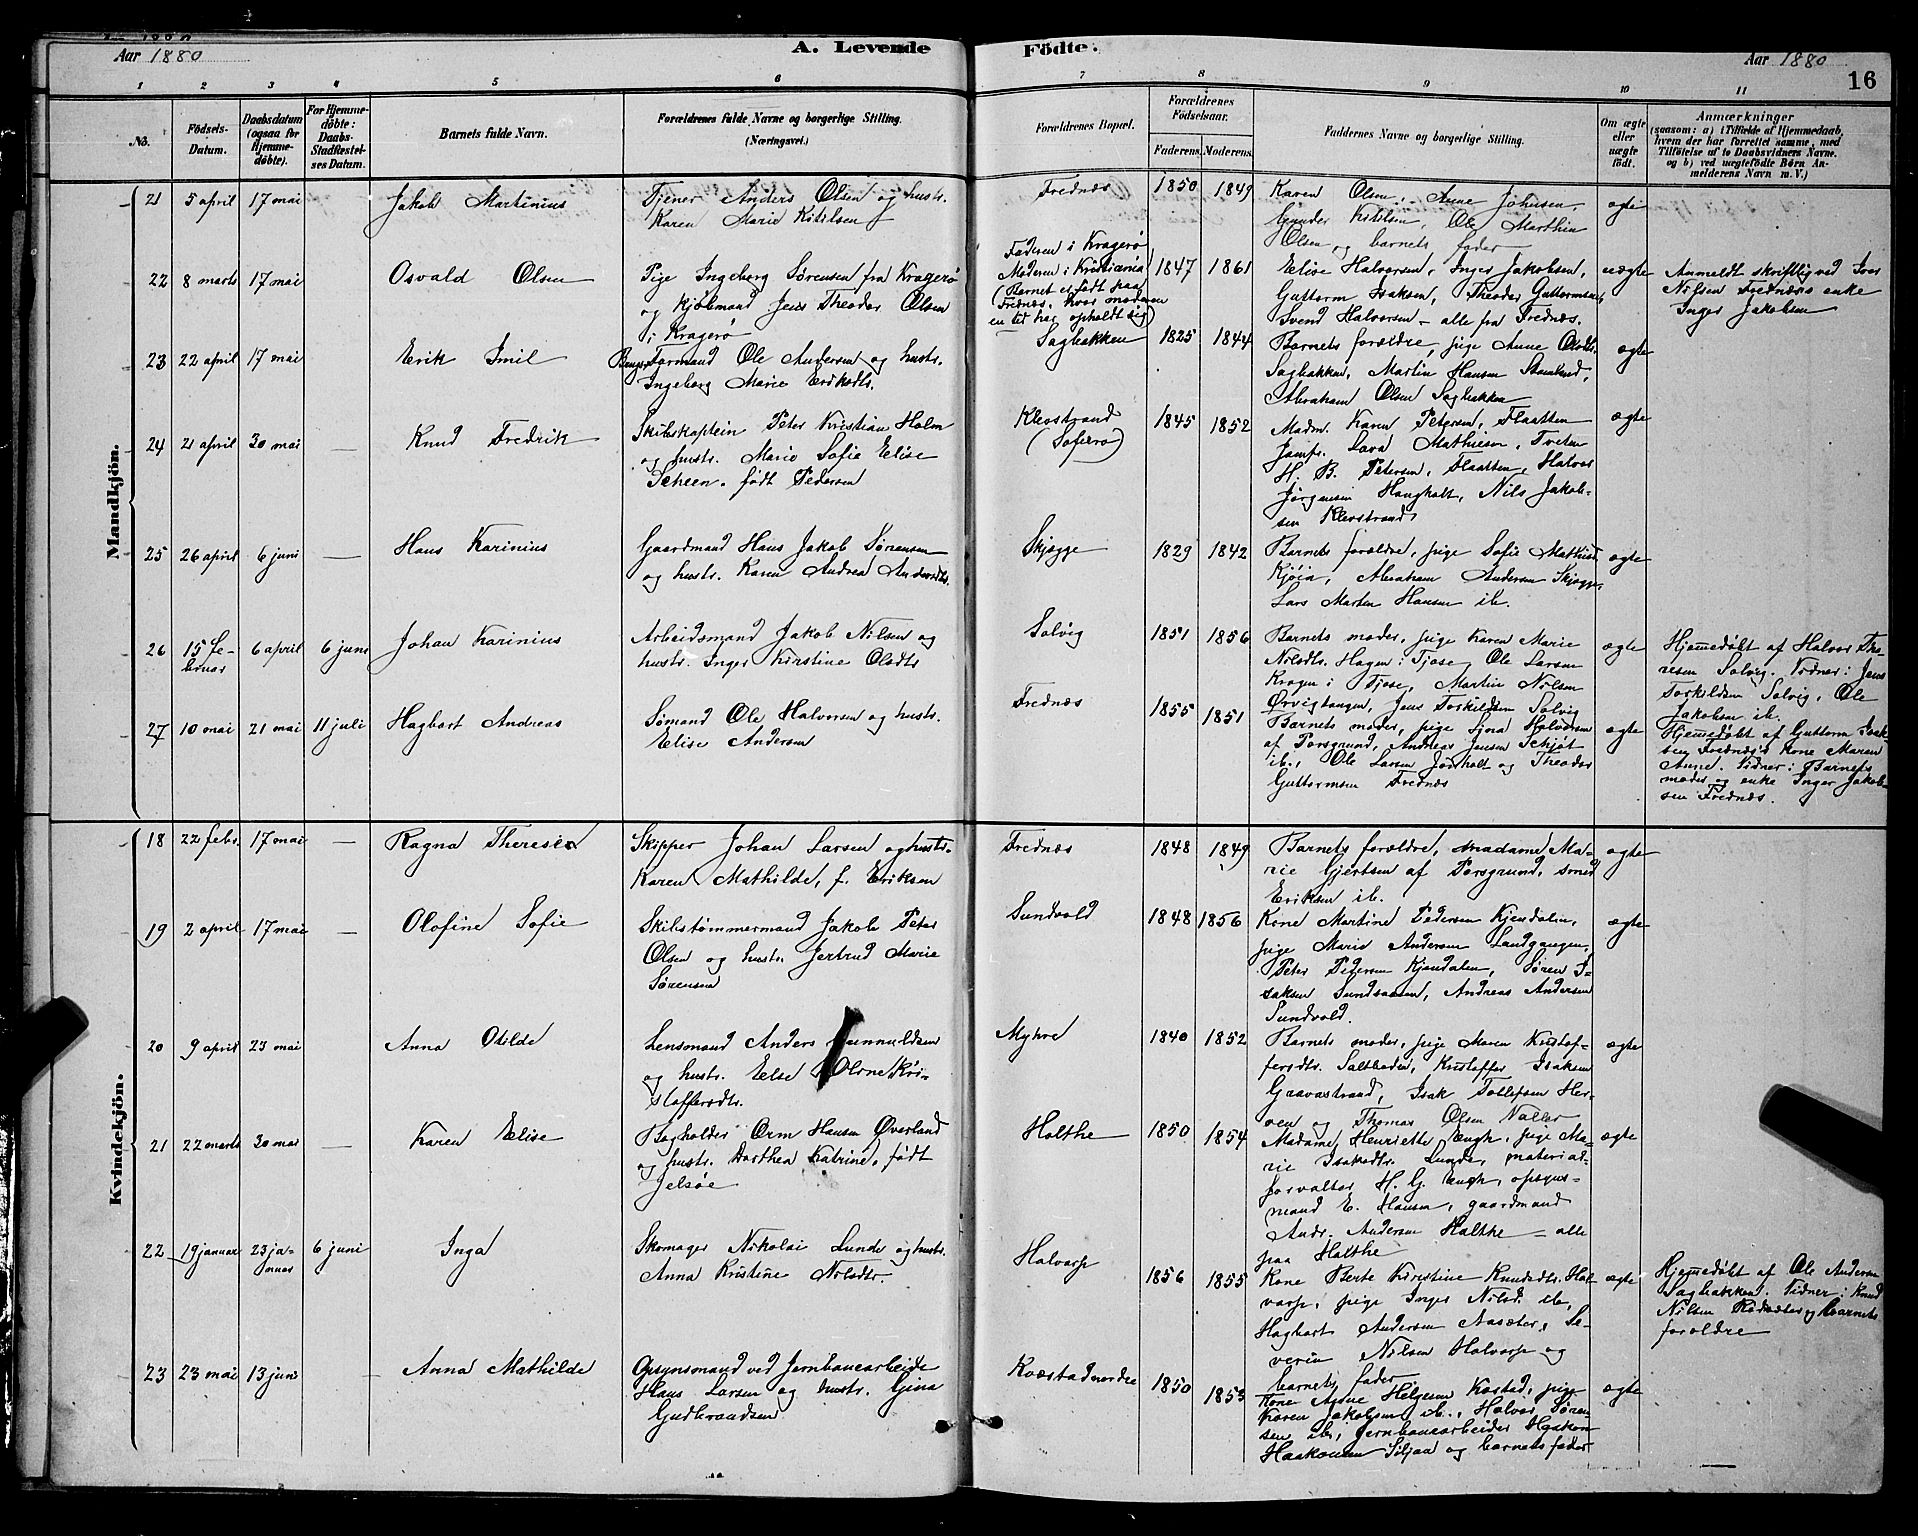 A. Levende Födte.
Aar 1880
Aar 1880
16
1 2 3 4 5 6 7 8 9 10 11
No.
Födsels-Datum.
Daabsdatum (ogsaa for Hjemme-döbte).
For Hjemme-döbte: Daabs-Stadfæstel-ses Datum.
Barnets fulde Navn.
Forældrenes fulde Navne og borgerlige Stilling. (Næringsvei.)
Forældrenes Bopæl.
Forældrenes Födselsaar.
Faderens. Moderens.
Faddernes Navne og borgerlige Stilling.
Om ægte eller uægte födt.
Anmærkninger
(saasom: a) i Tilfælde af Hjemmedaab, hvem der har forrettet samme, med Tilföielse af to Daabsvidners Navne, og b) ved uægtefödte Börn Anmelderens Navn m. V.)
Mandkjön.
21 5 april 17 mai Jakob Martinius
Tjener Anders Olsen og hustr.
Karen Marie Kittilsen
Frednæs 1850 1849
Karen Olsen, Anne Johnsen,
Gunder Kittilsen, Ole Marthin
Olsen og barnets fader
ægte
22 8 marts 17 mai Osvald Olsen
Pige Ingeborg Sørensen fra Kragerø
og kjøbmand Jens Theodor Olsen
i Kragerø
Faderen i Kragerø
Moderen i Kristiania
(Barnet er født paa
Frednæs, hvor moderen
en tid har opholdt sig)
1847 1861
Elise Halvorsen, Inger Jakobsen,
Guttorm Isaksen, Theodor Guttormsen,
Svend Halvorsen – alle fra Frednæs.
uægte
Anmeldt skriftlig ved Iver
Nilsen Frednæs's enke
Inger Jakobsen
23 22 april 17 mai Erik Emil
Ole Andersen og hustr.
Ingeborg Marie Eriksdtr.
Sagbakken 1825 1844
Barnets forældre, pige Anne Olsdtr.
Sagbakken, Martin Hansen
Abraham Olsen Sagbakken
ægte
24 21 april 30 mai — Knud Fredrik
Skibskaptein Peter Kristian Holm
og hustr. Marie Sofie Elise
Scheen, født Pedersen
Klevstrand
(Sofiero)
1845 1852
Madm. Karen Petersen, Flaatten
Jomfr. Lova Mathisen, Tveten
H. B. Petersen, Flaatten, Halvor
Jørgensen Haugholt, Nils Jakob-
sen Klevstrand
ægte
25 26 april 6 juni — Hans Karinius
Gaardmand Hans Jakob Sørensen
og hustr. Karen Andrea Andersdtr.
Skjegge 1829 1842
Barnets forældre, pige Sofie Mathisd.
Kjøia, Abraham Andersen Skjegge,
Lars Marten Hansen ib.
ægte
26 15 fe-
bruar 6 april 6 juni Johan Karinius
Arbeidsmand Jakob Nilsen og
hustr. Inger Kirstine Olsdtr
Solvig 1851 1856
Barnets moder, pige Karen Marie
Nilsdtr. Hagen i Tjose, Ole Larsen
Kragen i Tjose, Martin Nilsen
Ørvigtangen, Jens Torkildsen Solvig
ægte
Hjemmedøbt af Halvor Tho-
resen Solvig. Vidner: Jens
Torkildsen Solvig, Ole
Jakobsen ib.
27 10 mai 21 mai 11 juli Hagbart Andreas
Sømand Ole Halvorsen og hustr.
Elise Andersen
Frednæs 1855 1851
Barnets moder, pige Sina Halvorsen
af Porsgrund, Andreas Jensen Schjøt
ib., Ole Larsen Jønholt og Theodor
Guttormsen Frednæs
ægte
Hjemmedøbt af Guttorm Isak-
sen Frednæs's kone Maren
Anne. Vidner: Barnets
moder og enke Inger Jakob-
sen Frednæs.
Kvindekjön.
18 22 febr. 17 mai — Ragna Theresie
Skipper Johan Larsen og hustr.
Karen Mathilde, f. Eriksen
Frednæs 1848 1849
Barnets forældre, madame Ma-
rie Gjertsen af Porsgrund, smed
Eriksen ib.
ægte
19 2 april 17 mai — Olofine Sofie
Skibstømmermand Jakob Peter
Olsen og hustr. Jertrud Marie
Sørensen
Sundvold 1848 1856
Kone Martine Pedersen Kjendalen,
pige Marie Andersen Landgangen,
Peter Pedersen Kjendalen, Søren I-
saksen Sundsaasen, Andreas Andersen
Sundvold.
ægte
20 9 april 23 mai Anna Otilde
Lensmand Anders Gunnuldsen
og hustr. Else Oline Kri-
stoffersdtr.
Myhre 1840 1852
Barnets moder, pige Maren Kristof-
fersdtr. Saltboden, Kristoffer Isaksen
Graavastrand, Isak Tollefsen Her-
ven og Thomas Olsen Valler
ægte
21 22 marts 30 mai — Karen Elise
Bogholder Orm Hansen Øverland
og hustr. Dorthea Katrine, født
Jelsøe
Holthe 1850 1854
Madame Henriette Engh, pige Ma-
rie Isaksdtr. Lunde, material-
forvalter H. G. Engh, opsyns-
mand E. Hansen, gaardmand
Andr. Andersen Holthe – alle
paa Holthe
ægte
22 19 januar 23 ja-
nuar 6 juni Inga
Skomager Nikolai Lunde og hustr.
Anna Kristine Nilsdtr.
Halvarp 1856 1855
Kone Berte Kirstine Knudsdtr. Hal-
varp, pige Inger Nilsd. ib,
Hagbart Andersen Aasæter, Se-
verin Nilsen Halvarp og
barnets fader
ægte
Hjemmedøbt af Ole Andersen
Sagbakken. Vidner: Knud
Nilsen og barnets
forældre
23 23 mai 13 juni — Anna Mathilde
Opsynsmand ved Jernbanearbeide
Hans Larsen og hustr. Gina
Gudbrandsen
Kokstad nordre 1850 1853
Kone Anne Helgesen Kostad, pige
Karen Jakobsen ib., Halvor Søren-
sen ib, jernbanearbeider Haakon
Haakonsen Siljan og barnets fader
ægte